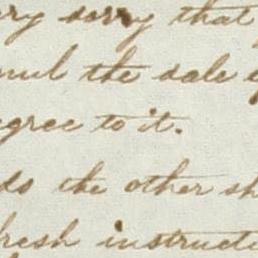 ry sorry that
nul the sale
agree to it.
ds the other sh
resh instructi